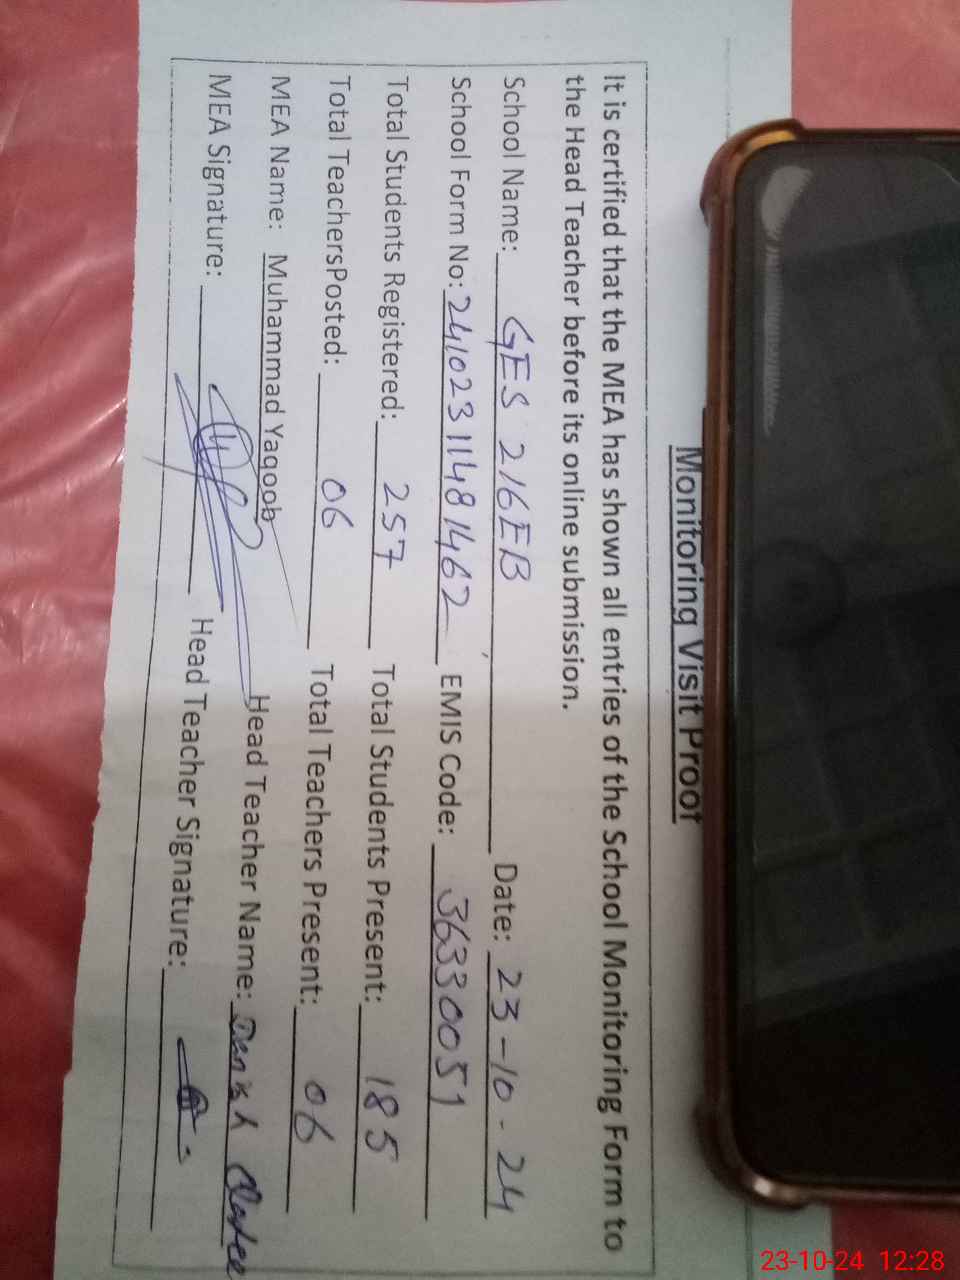 Monitoring Visit Proof
It is certified that the MEA has shown all entries of the School Monitoring Form to
the Head Teacher before its online submission.
School Name: GES 216EB Date: 23-10-24
School Form No: 24102311481462 EMIS Code: 36330051
Total Students Registered: 257 Total Students Present: 185
Total TeachersPosted: 06 Total Teachers Present: 06
MEA Name: Muhammad Yaqoob Head Teacher Name: Danish
MEA Signature: Head Teacher Signature:
23-10-24 12:28